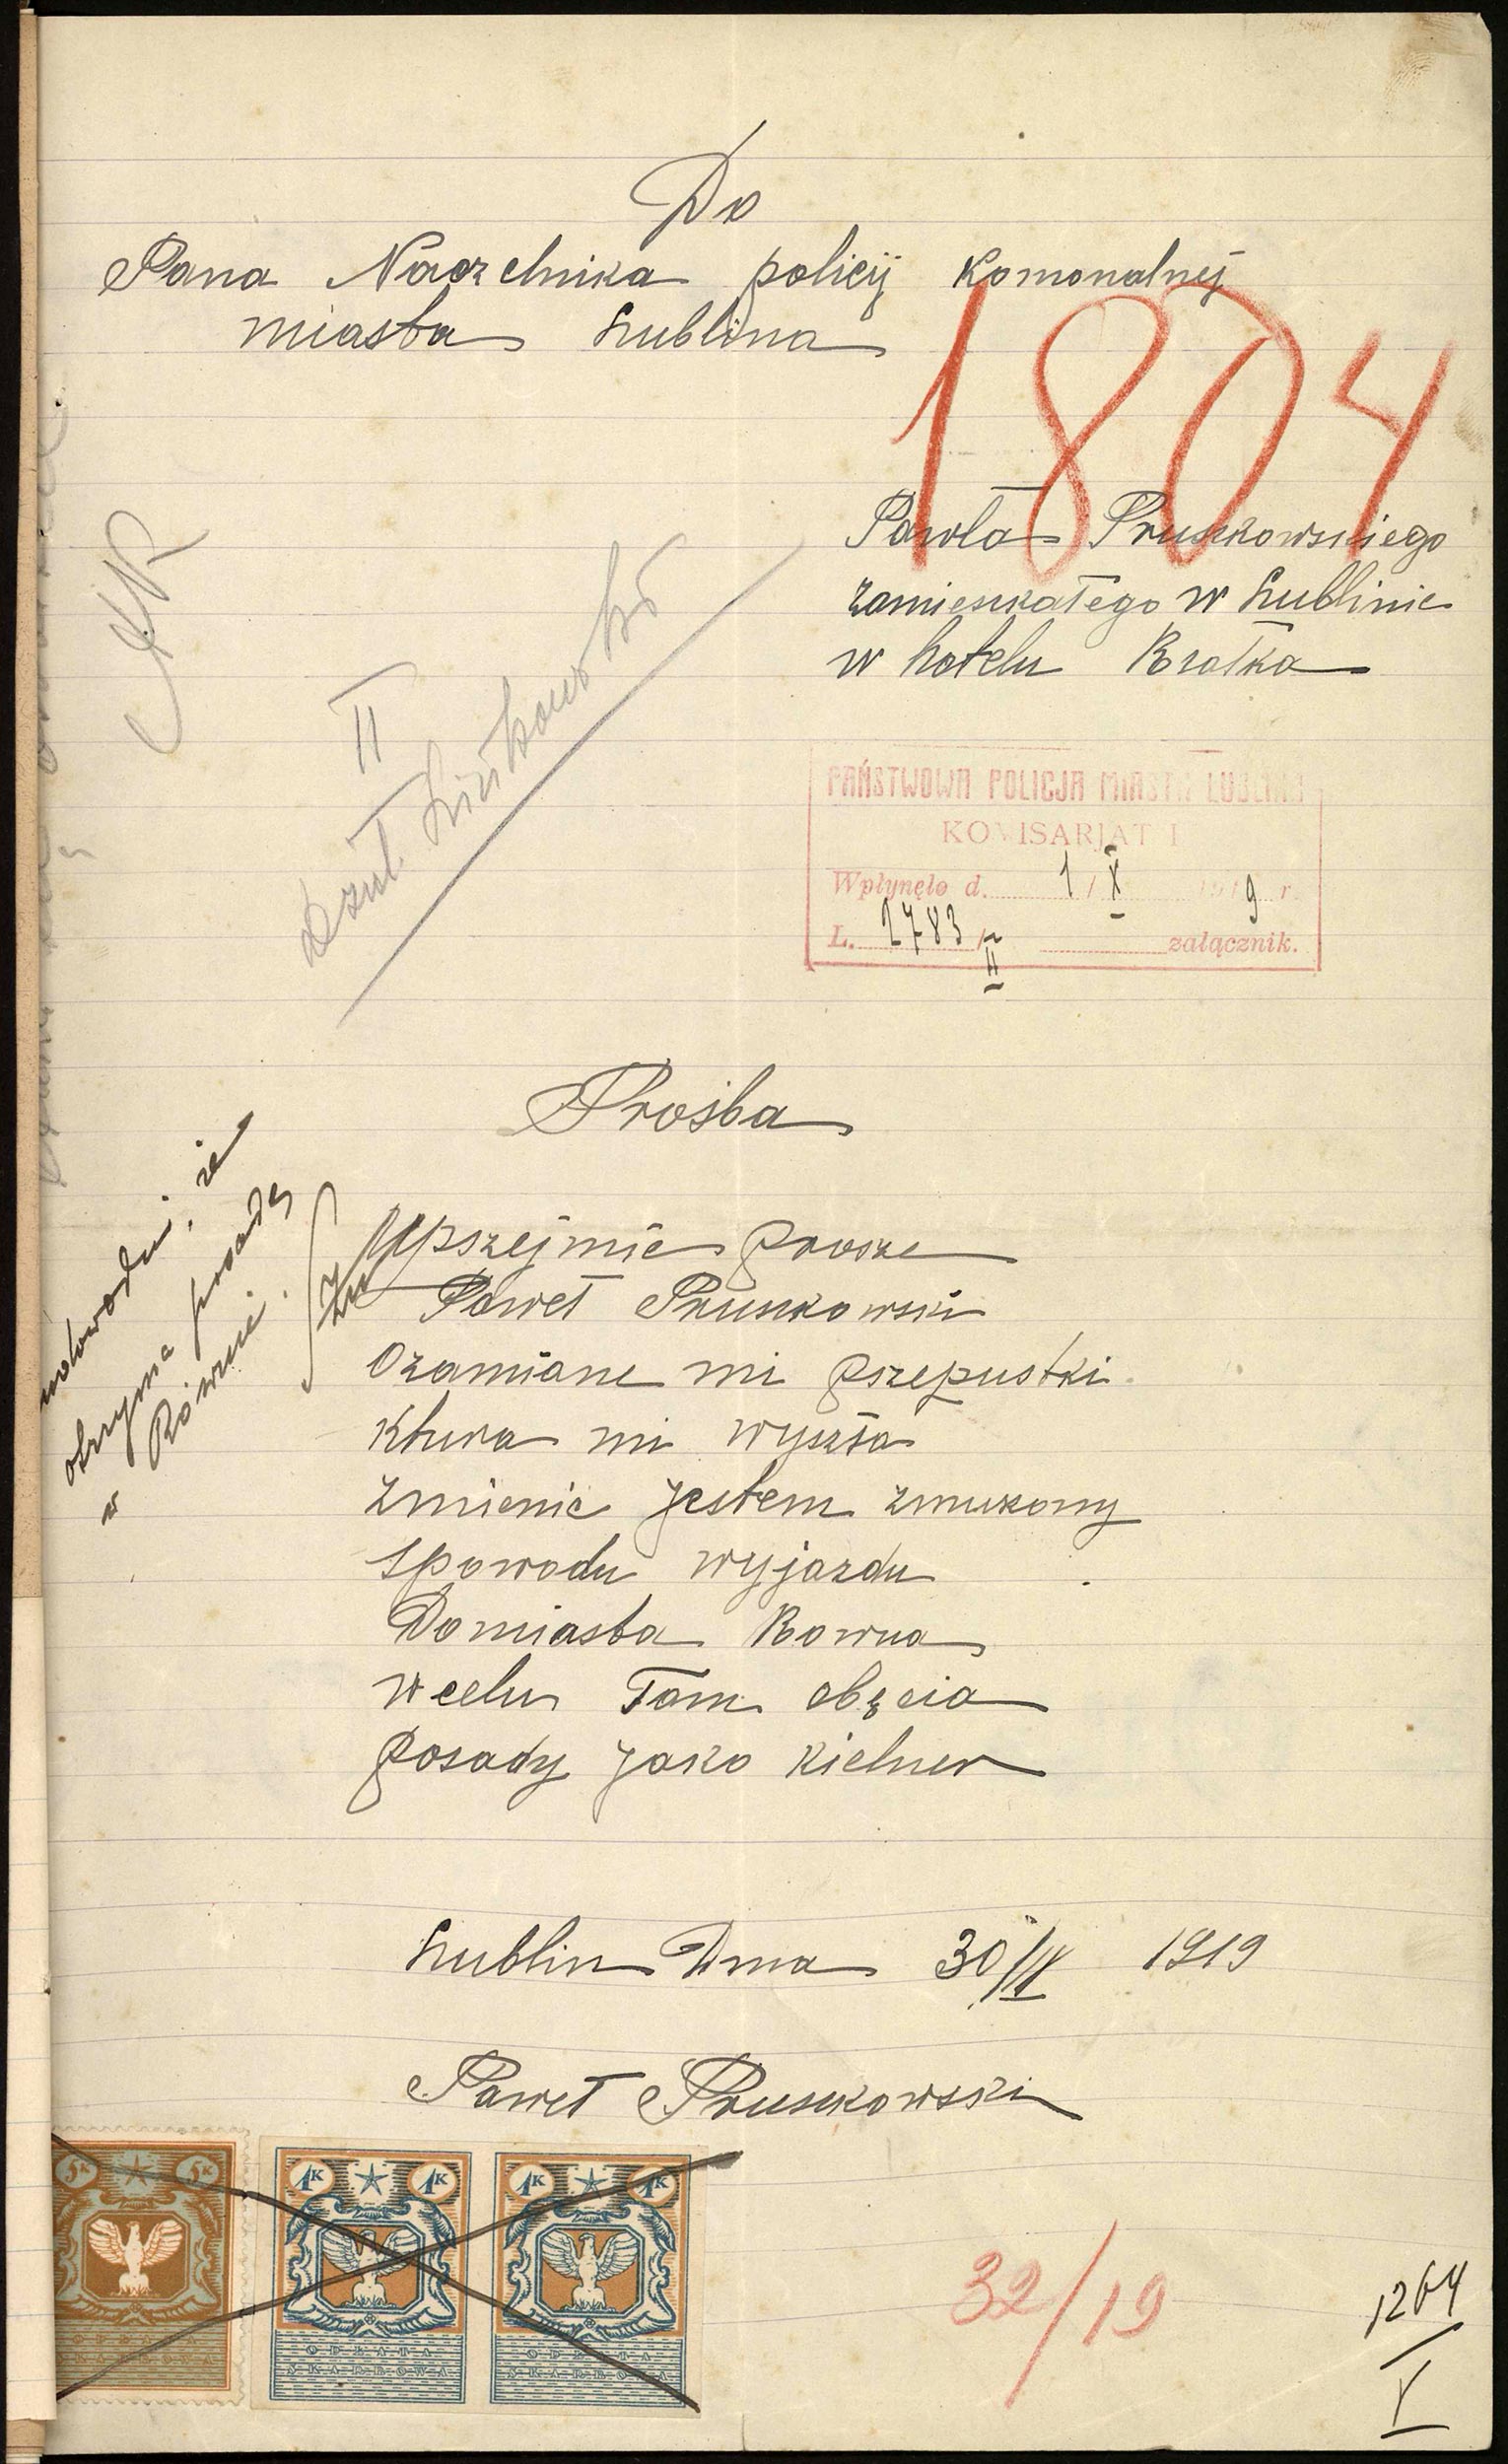 Do
Pana Naczelnika policyj Komonalnej
miasta Lublina
1804
Pawła Pruszkowskiego
zamieszkałego w Lublinie
w hotelu Bratka
II
PAŃSTWOWA POLICJA MIASTA LUBLINA
KOMISARJAT I
Wpłynęło d. 1/X 1919 r.
L. 2783/II załącznik.
Prośba
Upszejmie prosze
Paweł Pruszkowski
Ozamiane mi pszepustki
Ktura mi wyszła
zmienic jestem zmuszony
spowodu wyjazdu
Domiasta Rowna
wcelu Tam obęcia
posady jako kielner
udowodni, że
otrzyma posadę
w Równie.
Lublin Dnia 30/IX 1919
Paweł Pruszkowski
5K 5K
1K 1K
1K 1K
OPŁATA
SKARBOWA
OPŁATA
SKARBOWA
OPŁATA
SKARBOWA
32/19
1264
V